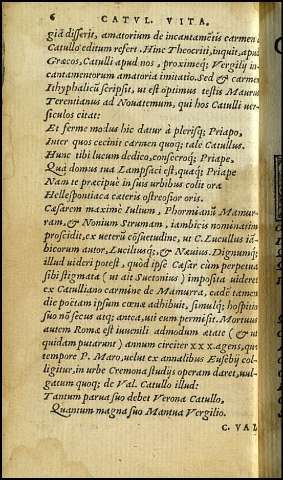 6 CATVL. VITA.
giã disseris, amatorium de incantamẽtis carmen à
Catullo editum refert. Hinc Theocriti, inquit, apud
Græcos, Catulli apud nos, proximeq; Vergilij in
cantamentorum amatoria imitatio. Sed & carmen
Ithyphalicũ scripsit, ut est optimus testis Maurus
Terentianus ad Nouatemum, qui hos Catulli ver
siculos citat:
Et ferme modus hic datur à plerisq; Priapo,
Inter quos cecinit carmen quoq; tale Catullus.
Hunc tibi lucum dedico, consecroq; Priape,
Quà domus tua Lampsaci est, quaq; Priape
Nam te præcipuè in suis urbibus colit ora
Hellespontiaca cæteris ostreosior oris.
Cæsarem maximè Iulium, Phormianũ Mamur-
ram, & Nonium Strumam, iambicis nominatim
proscidit, ex veterũ cõsuetudine, ut C. Lucullus iã-
bicorum autor, Luciliusq; & Næuius. Dignumq;
illud uideri potest, quòd ipse Cæsar cùm perpetua
sibi stigmata ( ut ait Suetonius ) imposita uideret
ex Catulliano carmine de Mamurra, eadẽ tamen
die poëtam ipsum cœnæ adhibuit, simulq; hospitio
suo nõ secus atq; antea, uti eum permisit. Mortuus
autem Romæ est iuuenili admodum ætate ( & ut
quidam putarunt ) annum circiter xxx. agens, quo
tempore P. Maro, uelut ex annalibus Eusebij col-
ligitur, in urbe Cremona studijs operam daret, uul-
gatum quoq; de Val. Catullo illud:
Tantum parua suo debet Verona Catullo,
Quantum magna suo Mantua Vergilio.
C. VAL